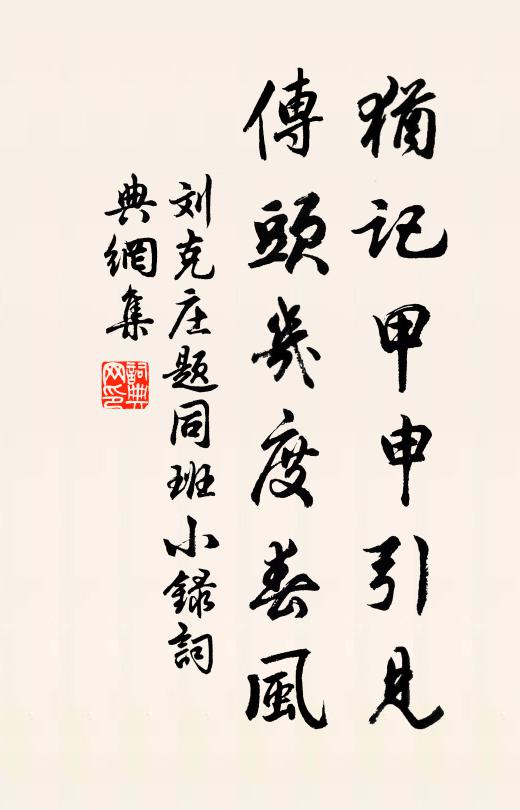 猶記甲申引見
傳頭幾度春風
刘克庄题同班小録詞
典網集
詞典
网印